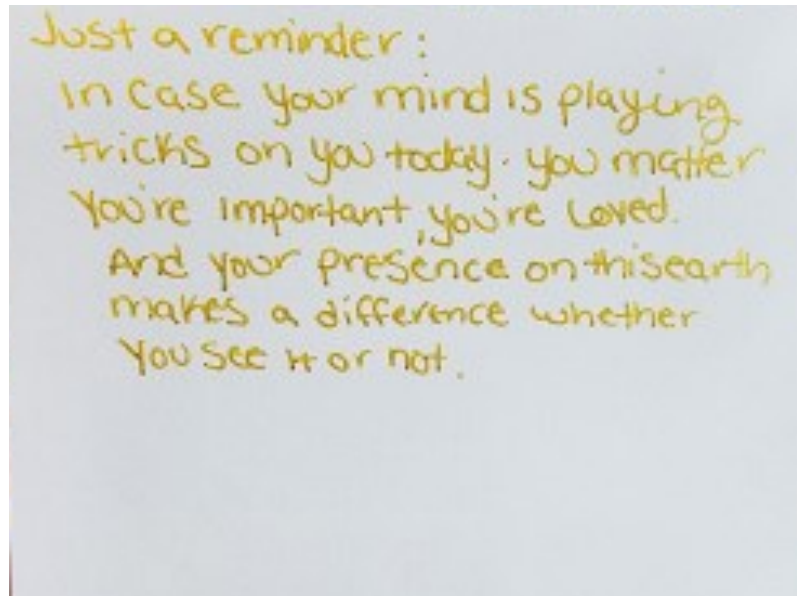 Just a reminder:
In case your mind is playing
tricks on you today. you matter
You're important, you're loved.
And your presence on this earth
makes a difference whether
You see it or not.